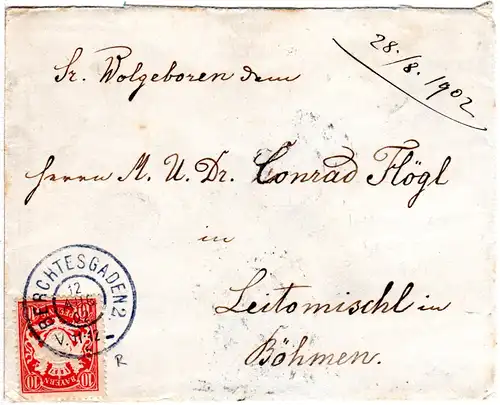 28./8. 1902
Sr. Wolgeboren dem
Herrn M. U. Dr. Conrad Flögl
in
BERCHTESGADEN 2
12
AUG
Leitomischl in
Böhmen.
R
BAYERN
10 10